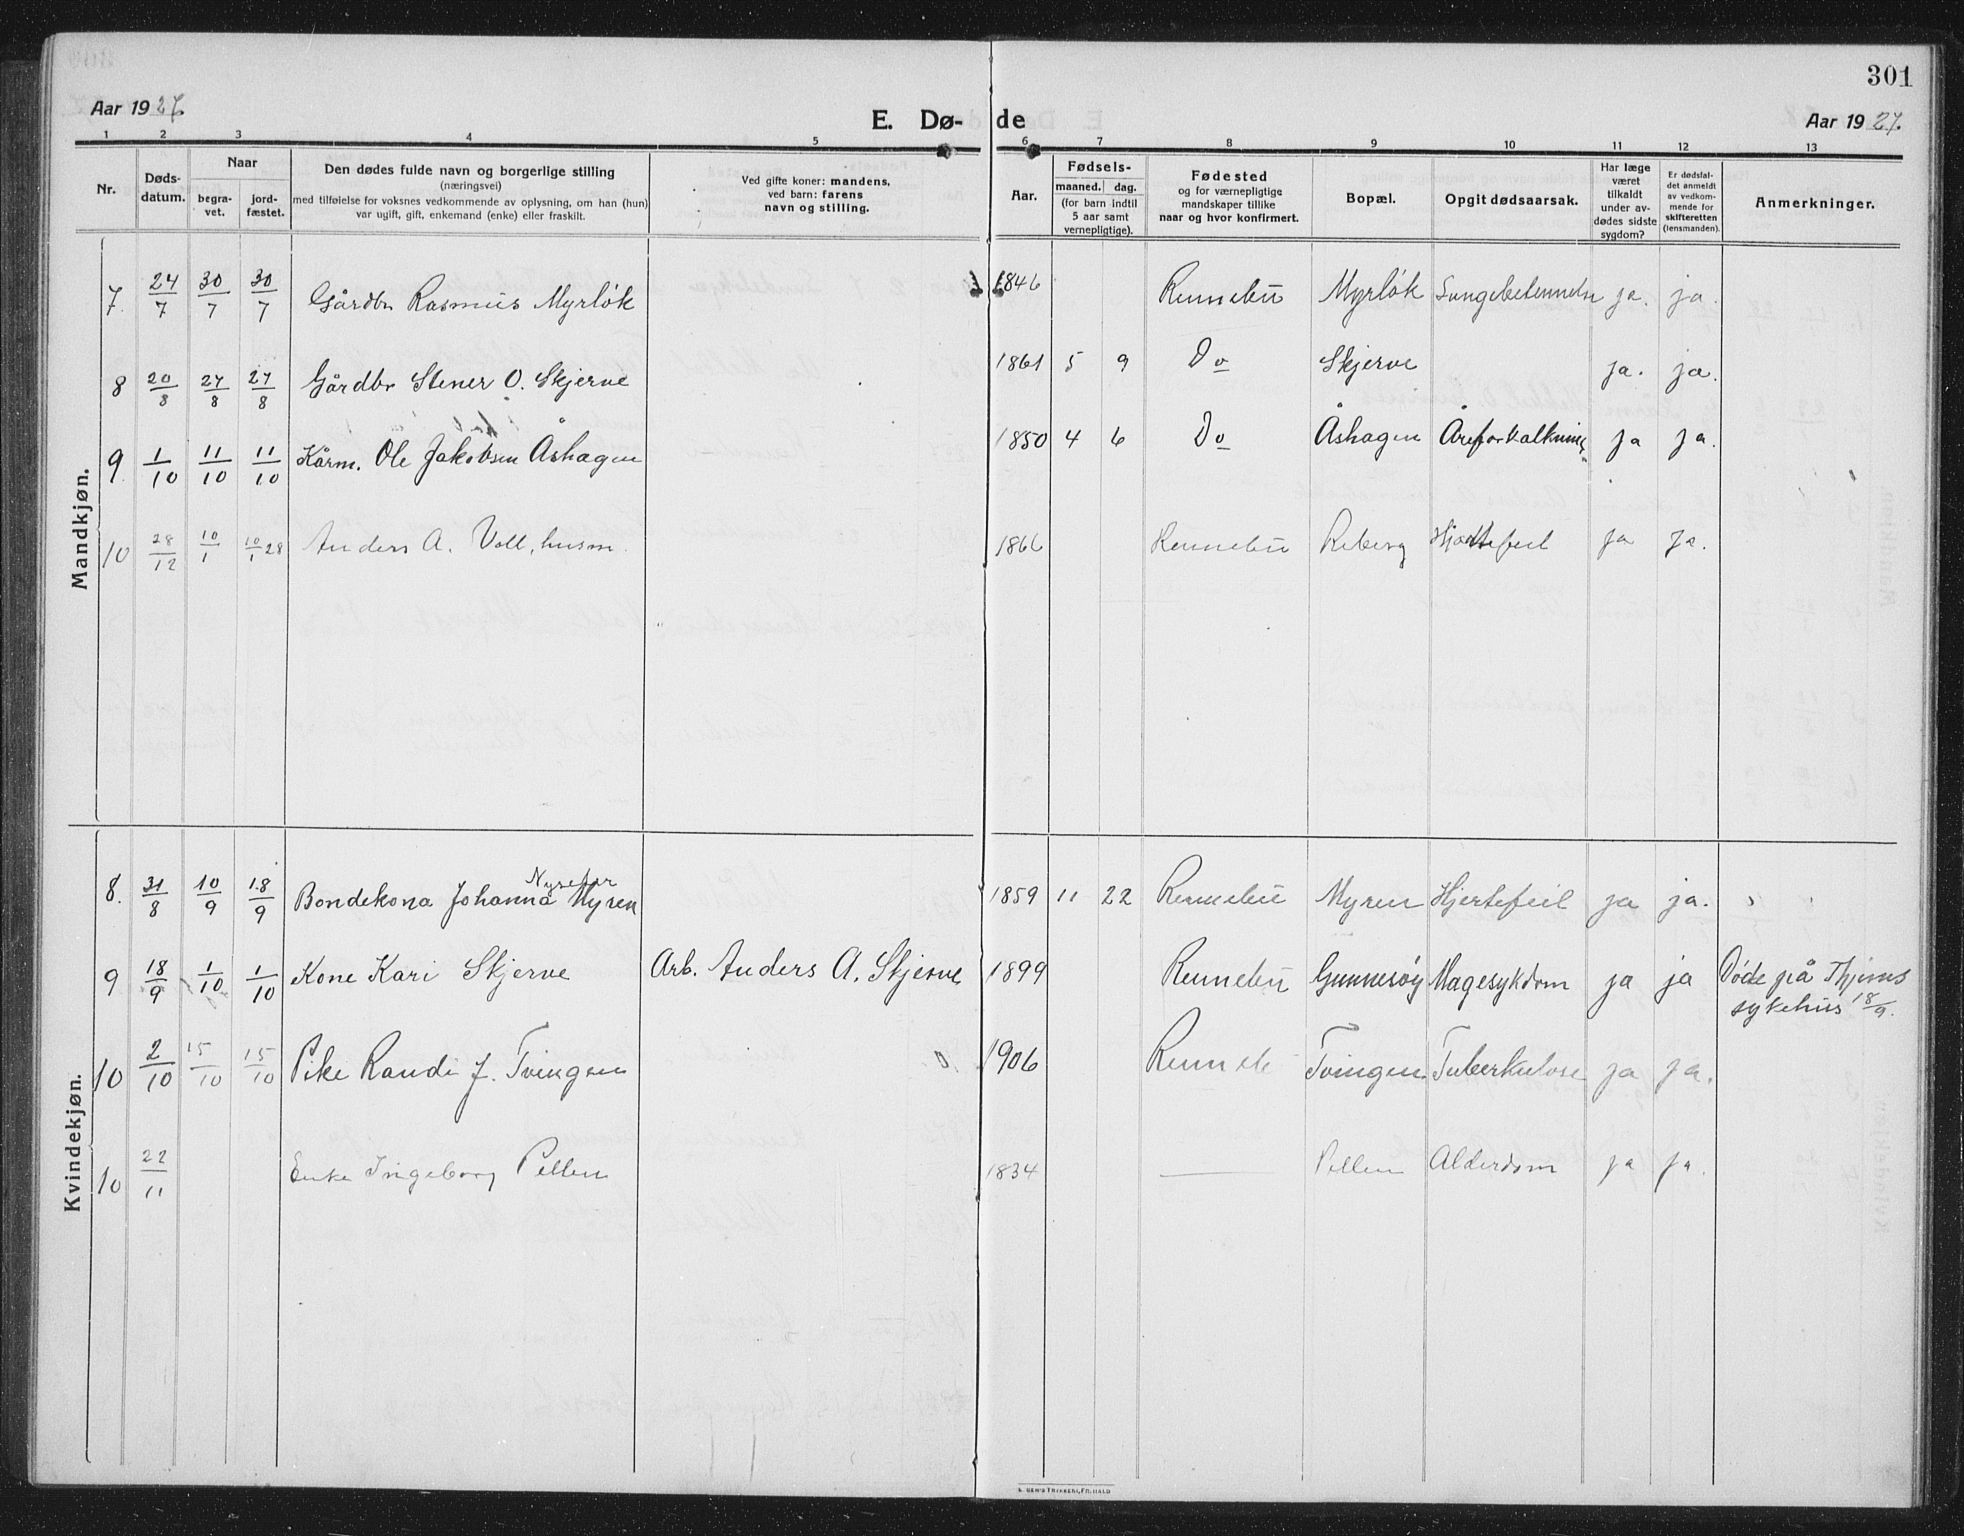 301
Aar 1927. E. Dø- de Aar 1927.
1 2 3 4 5 6 7 8 9 10 11 12 13
Nr.
Døds-
datum.
Naar
begra-
vet.
jord-
fæstet.
Den dødes fulde navn og borgerlige stilling
(næringsvei)
med tilføielse for voksnes vedkommende av oplysning, om han (hun)
var ugift, gift, enkemand (enke) eller fraskilt.
Ved gifte koner: mandens,
ved barn: farens
navn og stilling.
Aar.
Fødsels-
maaned. dag.
(for barn indtil
5 aar samt
vernepligtige).
Fødested
og for værnepligtige
mandskaper tillike
naar og hvor konfirmert.
Bopæl.
Opgit dødsaarsak.
Har læge
været
tilkaldt
under av-
dødes sidste
sygdom?
Er dødsfal-
det anmeldt
av vedkom-
mende for
skifteretten
(lensmanden).
Anmerkninger.
Mandkjøn.
7. 24/7 30/7 30/7 Gårdbr Rasmus Myrløk 1846 Rennebu Myrløk Lungebetennelse ja. ja.
8 20/8 27/8 27/8 Gårdbr Stener O. Skjerve 1861 5 9 Do Skjerve ja. ja.
9 1/10 11/10 11/10 Kårm. Ole Jakobsen Åshagen 1850 4 6 Do Åshagen Åreforkalkning ja ja.
10 28/12 10/1 10/1 28 Anders A. Voll, husm. 1866 Rennebu Reberg Hjertefeil ja ja.
Kvindekjøn.
8. 31/8 10/9 18/9 Bondekona Johanna Myren 1859 11 22 Rennebu Myren Hjertefeil ja ja.
9 18/9 1/10 1/10 Kone Kari Skjerve Arb. Anders A. Skjerve 1899 Rennebu Gunnesøy Magesykdom ja ja Døde på
sykehus 18/9.
10 2/10 15/10 15/10 Pike Randi J. Tvingen 1906 Rennebu Tvingen Tuberkulose ja ja.
10 22/11 Enke Ingeborg Pellen 1834 — Pellen Alderdom ja ja.